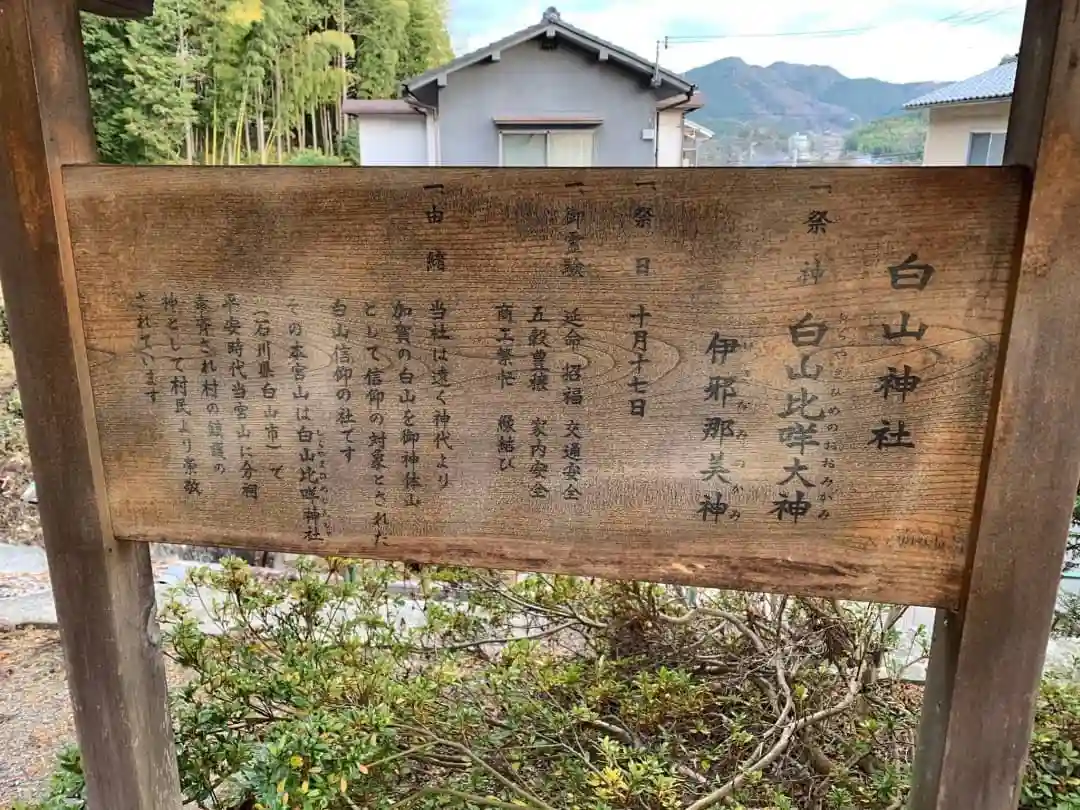 白山神社
一祭神 白山比咩大神
伊邪那美神
一祭日 十月十七日
一御霊験 延命 招福 交通安全
五穀豊穣 家内安全
商工繁忙 縁結び
一由緒 当社は遠く神代より
加賀の白山を御神体山
として信仰の対象とされた
白山信仰の社です
その本宮山は白山比咩神社
（石川県白山市）で
平安時代当宮山に分祠
奉斉され村の鎮護の
神として村民より崇敬
されています